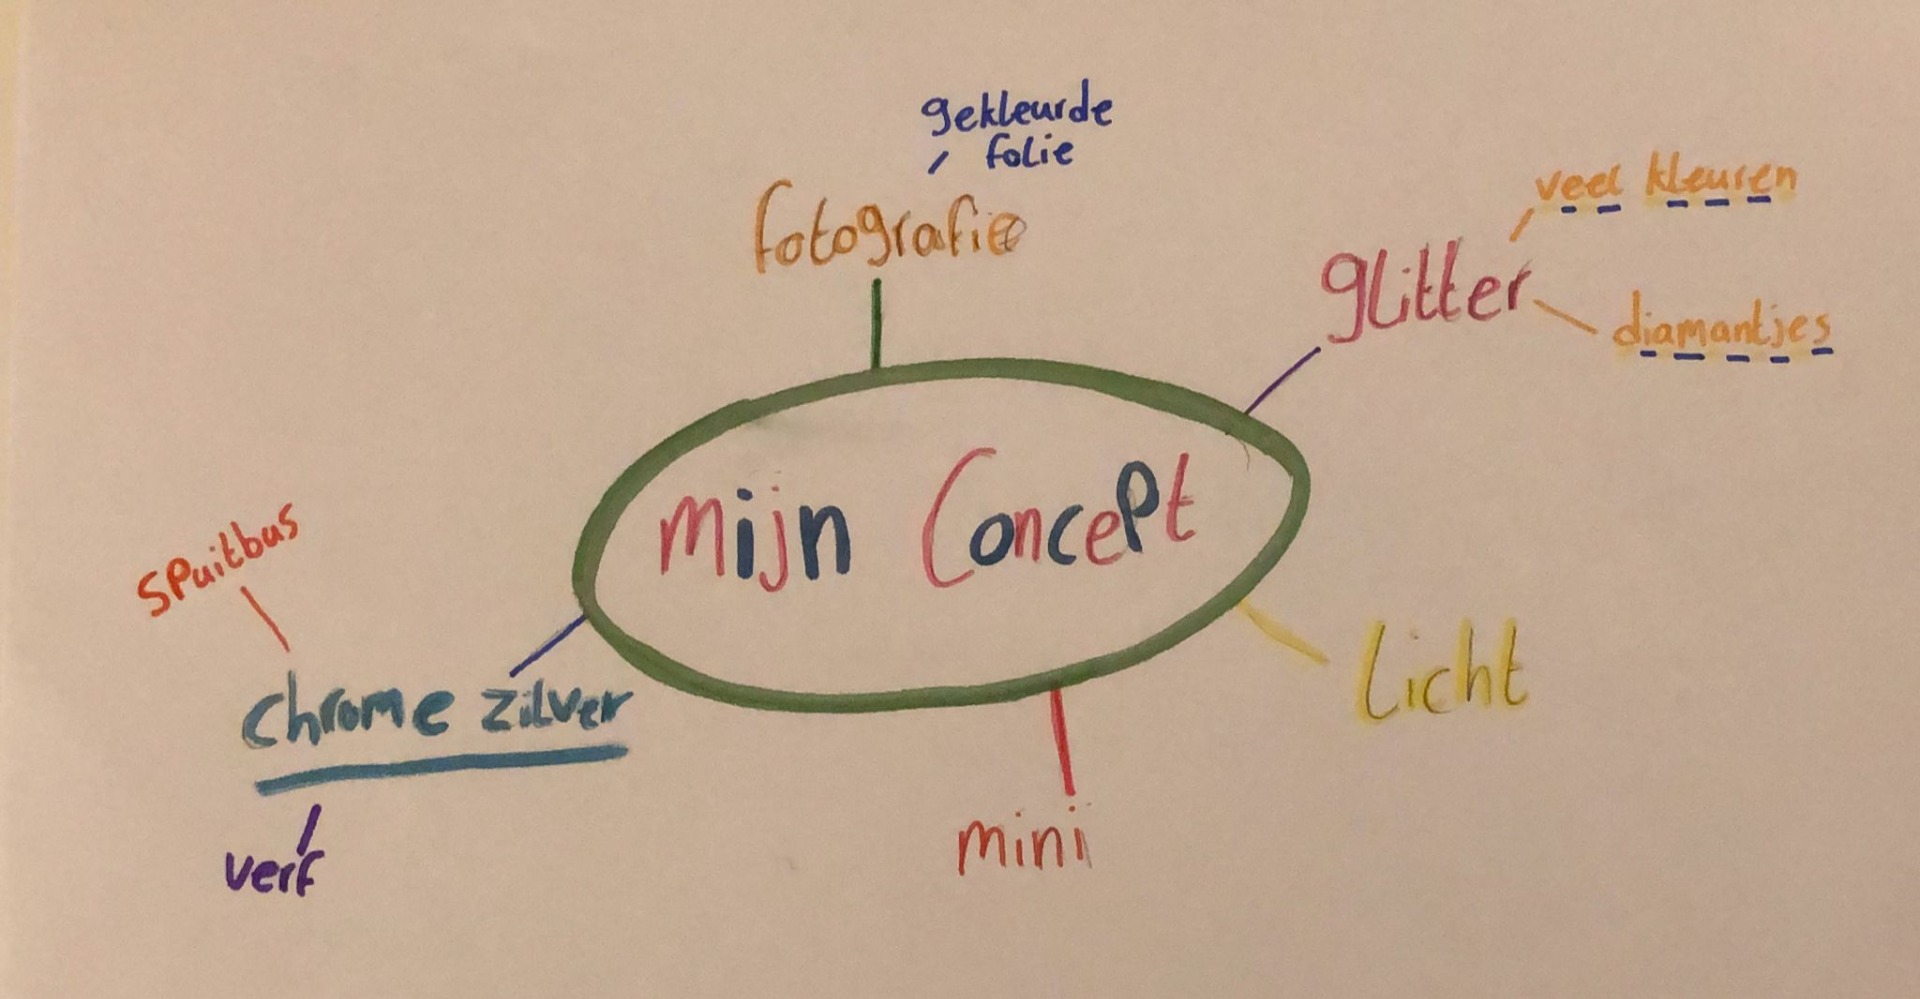 gekleurde
folie
fotografie
veel kleuren
glitter
diamantjes
mijn Concept
spuitbus
chrome zilver
verf
licht
mini